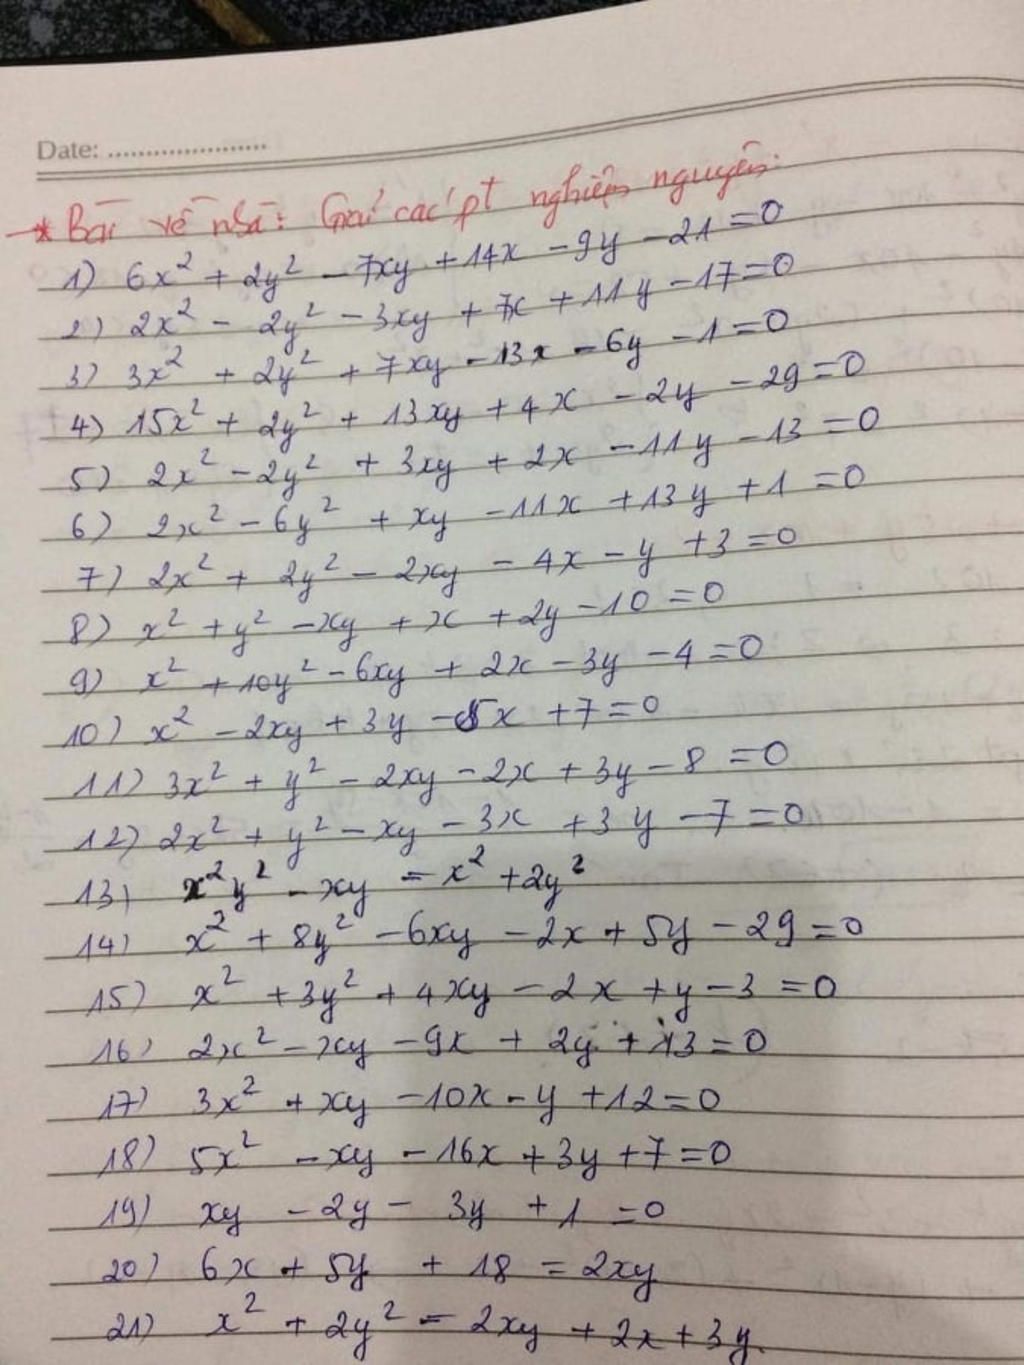 Date: ....................
* Bài về nhà: Giải các pt nghiệm nguyên:
1) 6x² + 2y² - 7xy + 14x - 9y - 21 = 0
2) 2x² - 2y² - 3xy + 7x + 11y - 17 = 0
3) 3x² + 2y² + 7xy - 13x - 6y - 1 = 0
4) 15x² + 2y² + 13xy + 4x - 2y - 29 = 0
5) 2x² - 2y² + 3xy + 2x - 11y - 13 = 0
6) 2x² - 6y² + xy - 11x + 13y + 1 = 0
7) 2x² + 2y² - 2xy - 4x - y + 3 = 0
8) x² + y² - xy + x + 2y - 10 = 0
9) x² + 10y² - 6xy + 2x - 3y - 4 = 0
10) x² - 2xy + 3y - 5x + 7 = 0
11) 3x² + y² - 2xy - 2x + 3y - 8 = 0
12) 2x² + y² - xy - 3x + 3y - 7 = 0
13) x²y² - xy = x² + 2y²
14) x² + 8y² - 6xy - 2x + 5y - 29 = 0
15) x² + 3y² + 4xy - 2x + y - 3 = 0
16) 2x² - xy - 9x + 2y + 13 = 0
17) 3x² + xy - 10x - y + 12 = 0
18) 5x² - xy - 16x + 3y + 7 = 0
19) xy - 2y - 3y + 1 = 0
20) 6x + 5y + 18 = 2xy
21) x² + 2y² = 2xy + 2x + 3y.